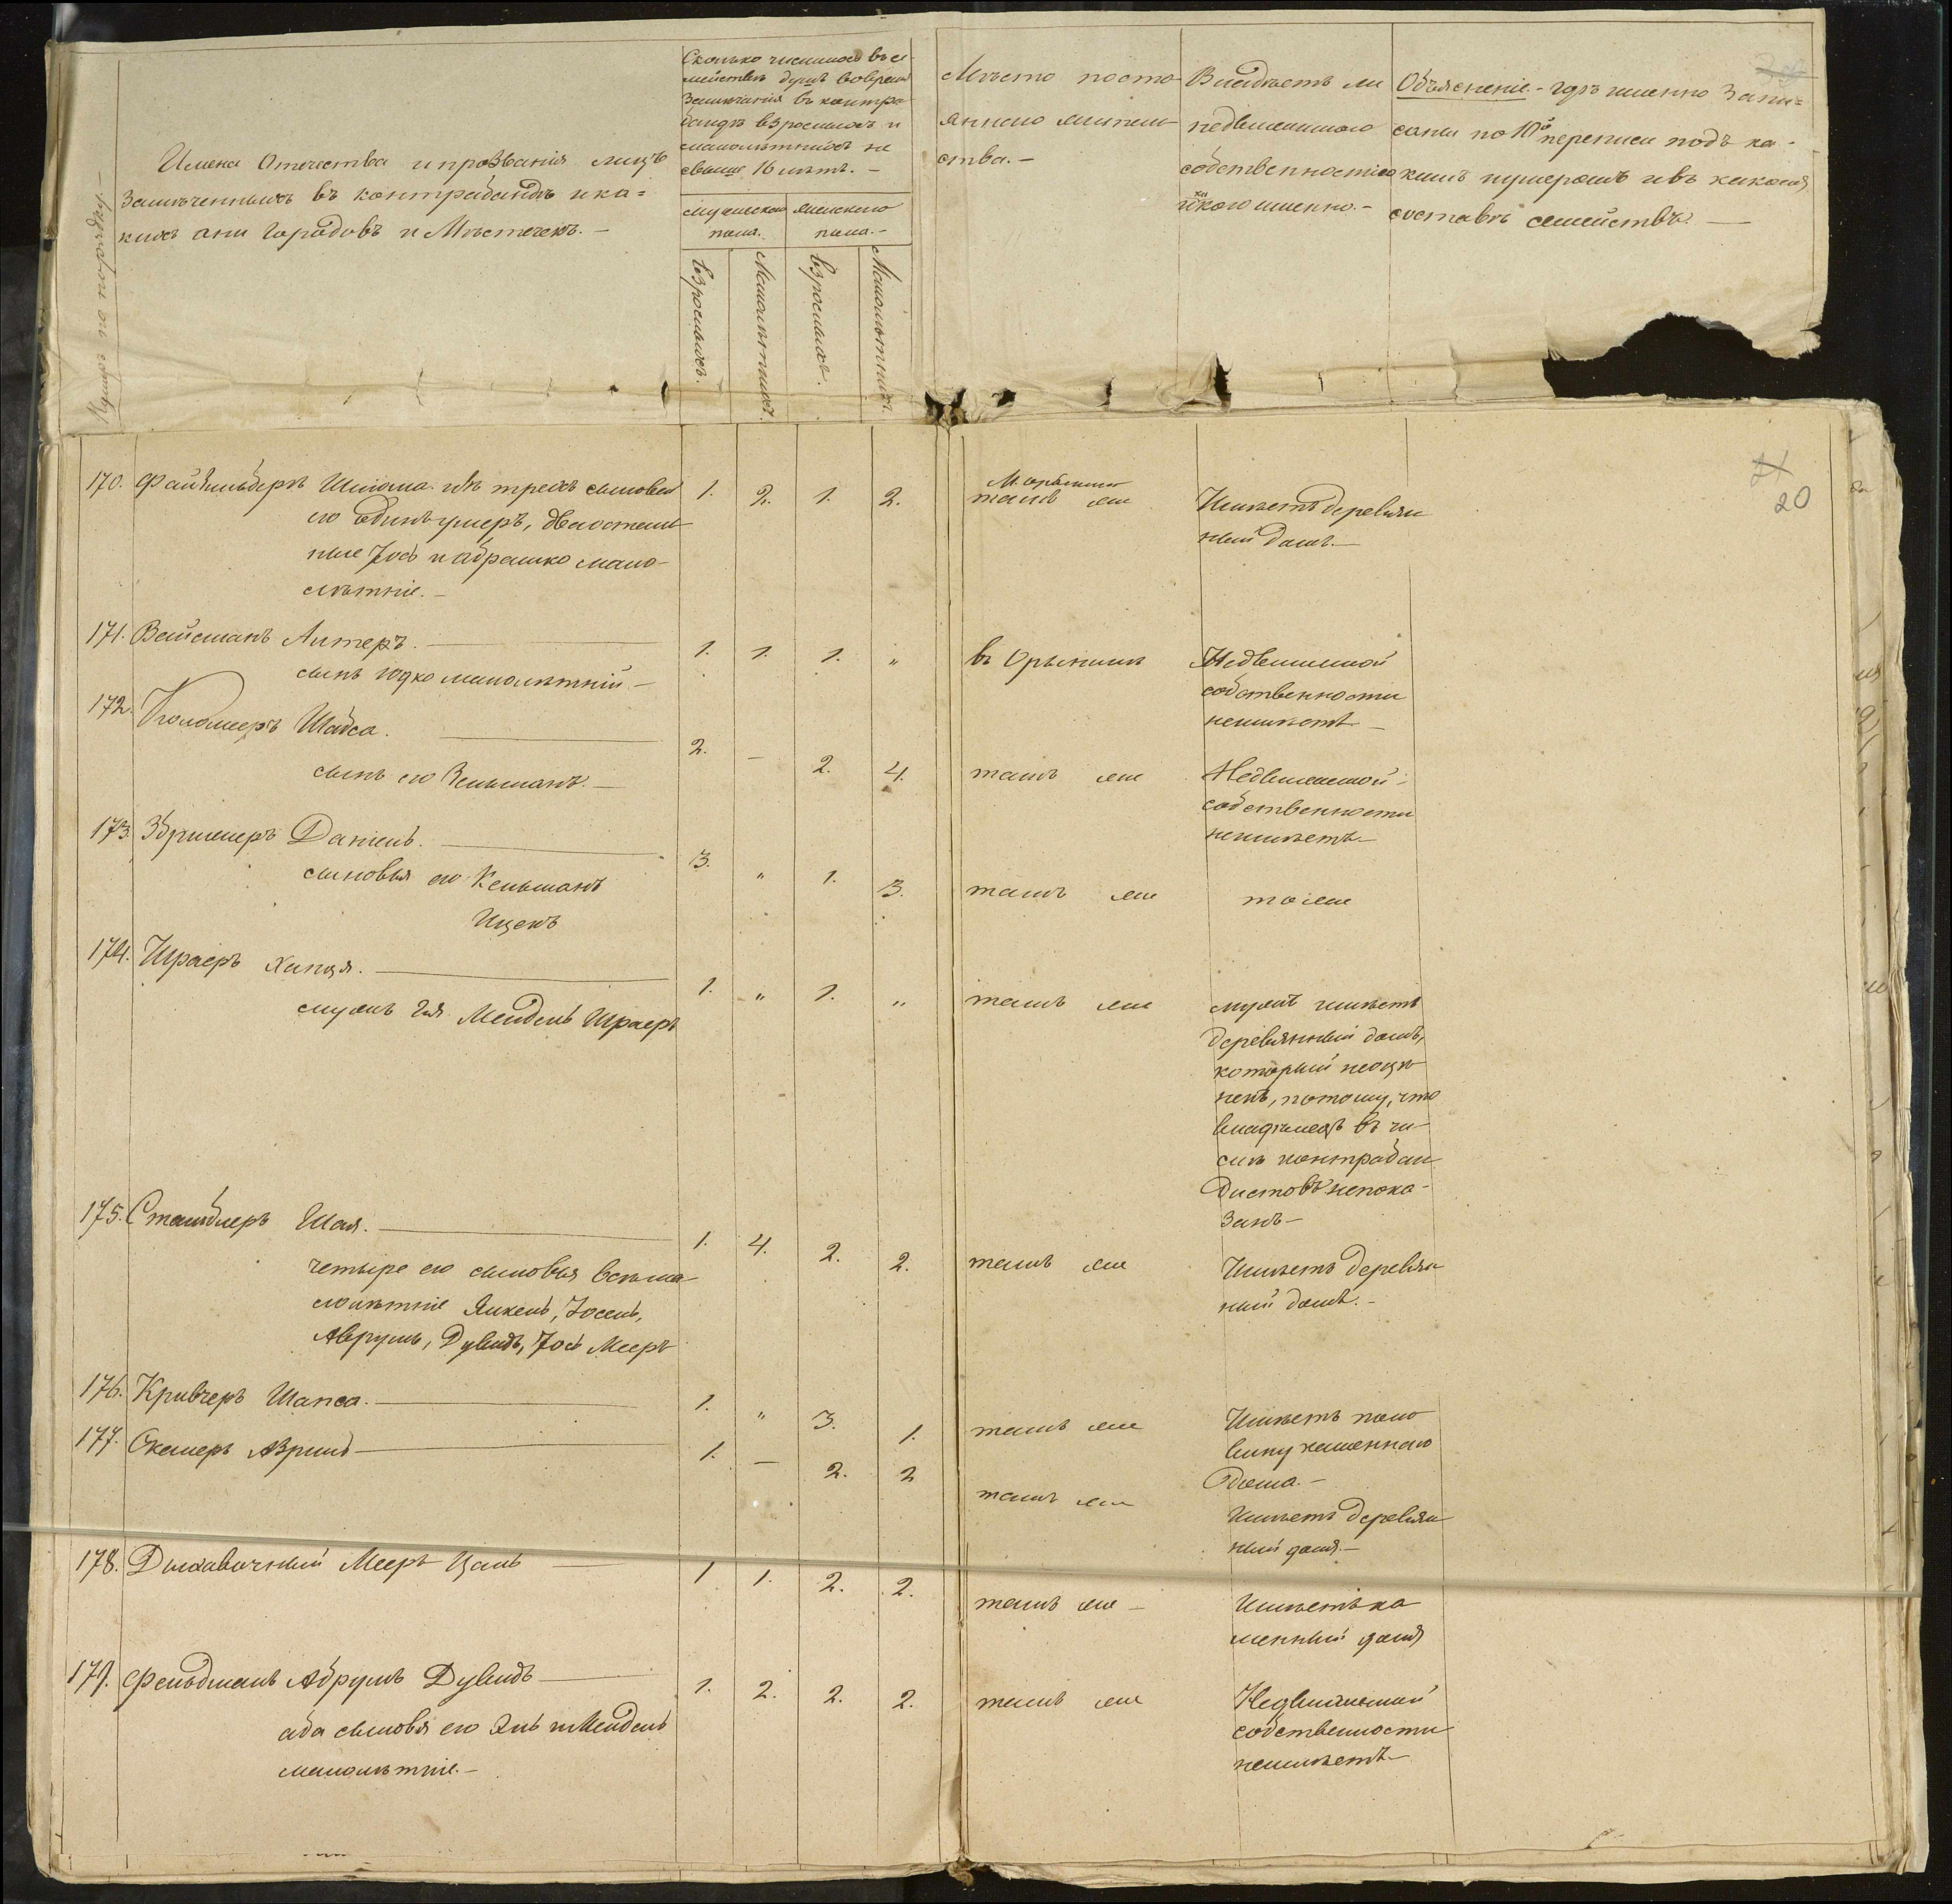 Нумера по порядку. —
Имена Отечества и прозванія лицъ
Замѣченныхъ въ контрабандѣ и ка=
кихъ они Городовъ и Мѣстечекъ. —
Сколько числилось въ се
мействѣ душъ вовремя
Замѣчанія въ контра
бандѣ взрослыхъ и
малолѣтнихъ не
свыше 16 лѣтъ. —
мужескаго пола.
женскаго пола. —
взрослыхъ.
Малолѣтнихъ.
взрослыхъ.
Малолѣтнихъ.
Мѣсто посто
яннаго житель
ства. —
Владѣетъ ли
недвижимою
собственностію
и какою именно. —
Объясненіе — гдѣ именно Запи=
саны по 10й переписи подъ ка-
кимъ нумеромъ и въ какомъ
составѣ семействѣ. —
20
170. Файнгильберъ Шлома. изъ трехъ сыновей 1. 2. 1. 2.
его одинъ умеръ, два осталь
ные Іось и Абрашко мало-
лѣтніе. —
М. Орынинъ
тамъ же
Имѣетъ деревян
ный домъ. —
171. Вайсманъ Алтеръ. 1. 1. 1. „ въ Орынинѣ
сынъ Юдко малолѣтній —
Недвижимой
собственности
неимѣетъ —
172. Коломееръ Шабса. 2. — 2. 4. тамъ же
сынъ его Зельманъ. —
Недвижимой
собственности
неимѣетъ —
173. Збришеръ Даніель. 3. „ 1. 3. тамъ же тоже
сыновья его Кельманъ
Ицекъ
174. Шраеръ Хапця. 1. „ 1. „ тамъ же
мужъ ея Мендель Шраеръ
мужъ имѣетъ
деревянный домъ,
который неоцѣ
ненъ, потому, что
владѣлецъ въ чи-
слѣ контрабан
дистовъ непока-
занъ —
175. Стамблеръ Шая. 1. 4. 2. 2. тамъ же
четыре его сыновья всѣ ма
лолѣтніе Янкель, Іосель,
Аврумъ, Дувидъ, Іось Мееръ
Имѣетъ деревян
ный домъ. —
176. Кривчеръ Шапса. 1. „ 3. 1. тамъ же
Имѣетъ поло
вину каменнаго
дома. —
177. Скалеръ Азриль 1. — 2. 2 тамъ же
Имѣетъ деревян
ный домъ. —
178. Дыхавичный Мееръ Цаль 1 1. 2. 2. тамъ же —
Имѣетъ ка
менный домъ
179. Фельдманъ Абрумъ Дувидъ 1. 2. 2. 2. тамъ же
оба сыновья его Эль и Мендель
малолѣтніе. —
Недвижимой
собственности
неимѣетъ —